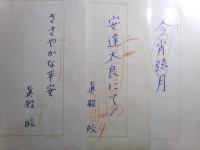 今宵弦月
安達太良にて
眞殿 皎
ささやかな平安
眞殿 皎